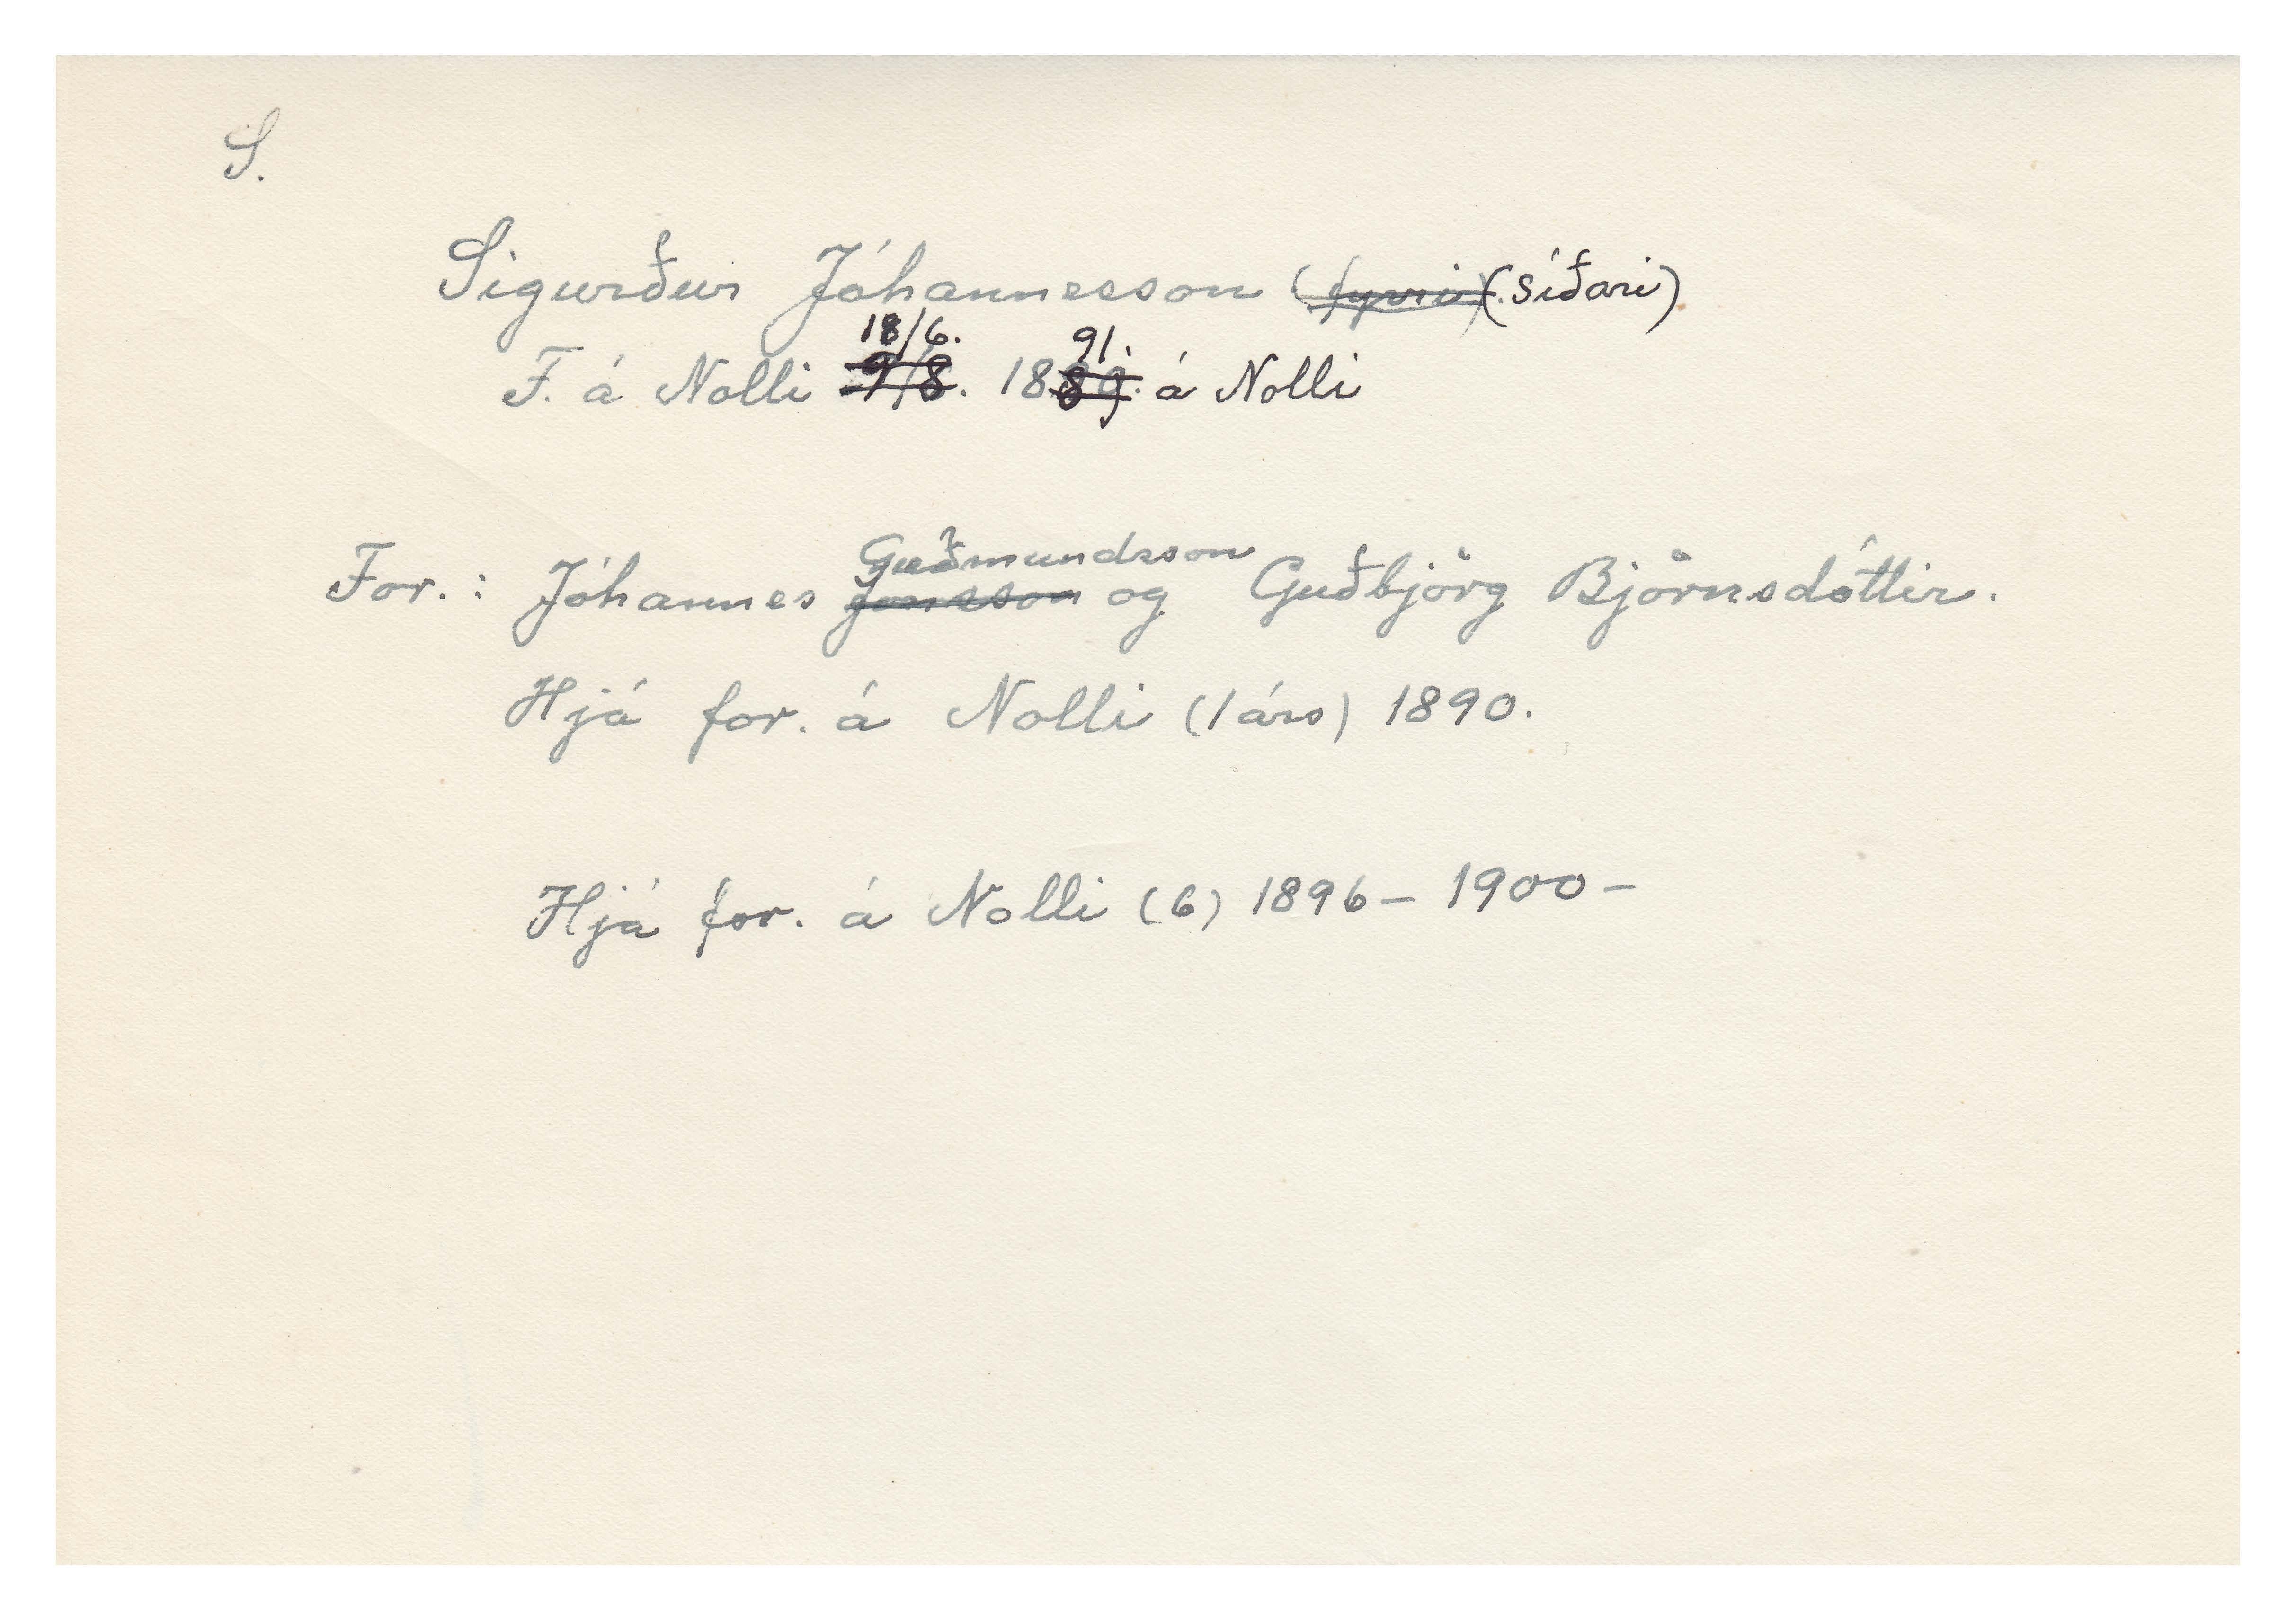 S.
Sigurður Jóhannesson (fyrri) (síðari)
18/6. 91.
F. á Nolli 9/8. 1889. á Nolli
Guðmundsson
For.: Jóhannes Jónsson og Guðbjörg Björnsdóttir.
Hjá for. á Nolli (1 árs) 1890.
Hjá for. á Nolli (6) 1896 – 1900 –